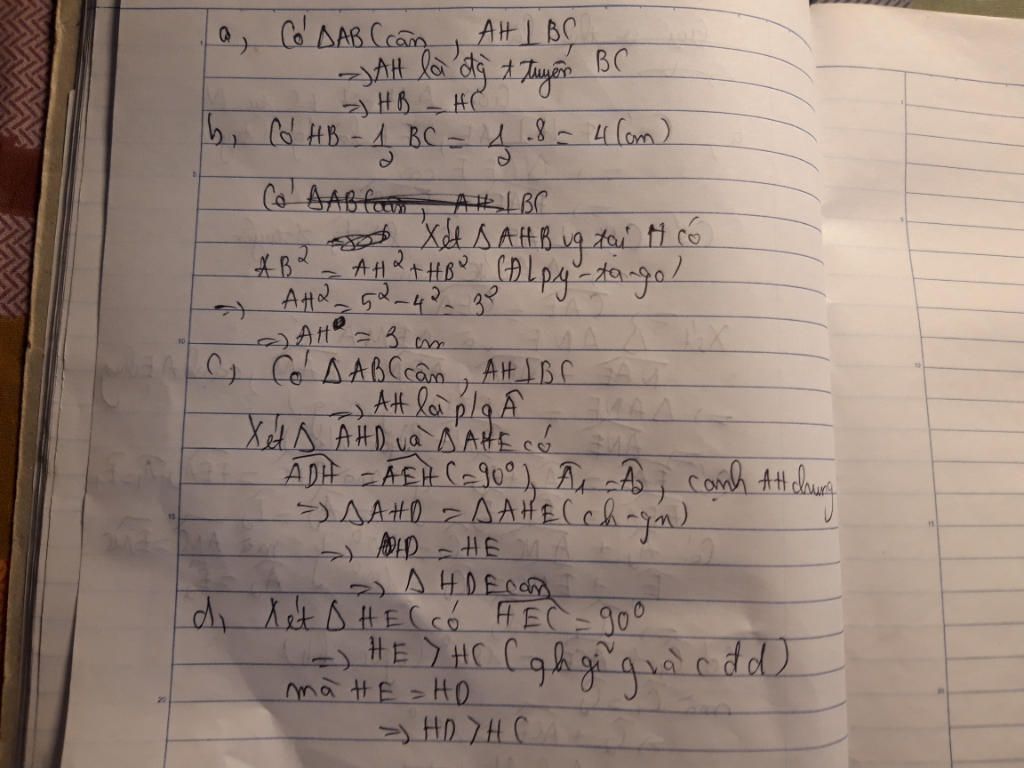 a, Có ΔABC cân, AH⊥BC
=> AH là đg t tuyến BC
=> HB = HC
b, Có HB = 1/2 BC = 1/2 .8 = 4(cm)
Có ΔABC cân, AH ⊥ BC
Xét ΔAHB vg tại H có
AB² = AH² + HB² (Đl py-ta-go)
=> AH² = 5² - 4² = 3²
=> AH = 3 cm
c, Có ΔABC cân, AH⊥BC
=> AH là p/g Â
Xét Δ AHD và ΔAHE có
ADH = AEH (=90°), Â1 = Â2, cạnh AH chung
=> ΔAHD = ΔAHE (ch-gn)
=> HD = HE
=> Δ HDE cân
d, Xét Δ HEC có HEC = 90°
=> HE > HC (qh giữ g và c đ d)
mà HE = HD
=> HD > HC